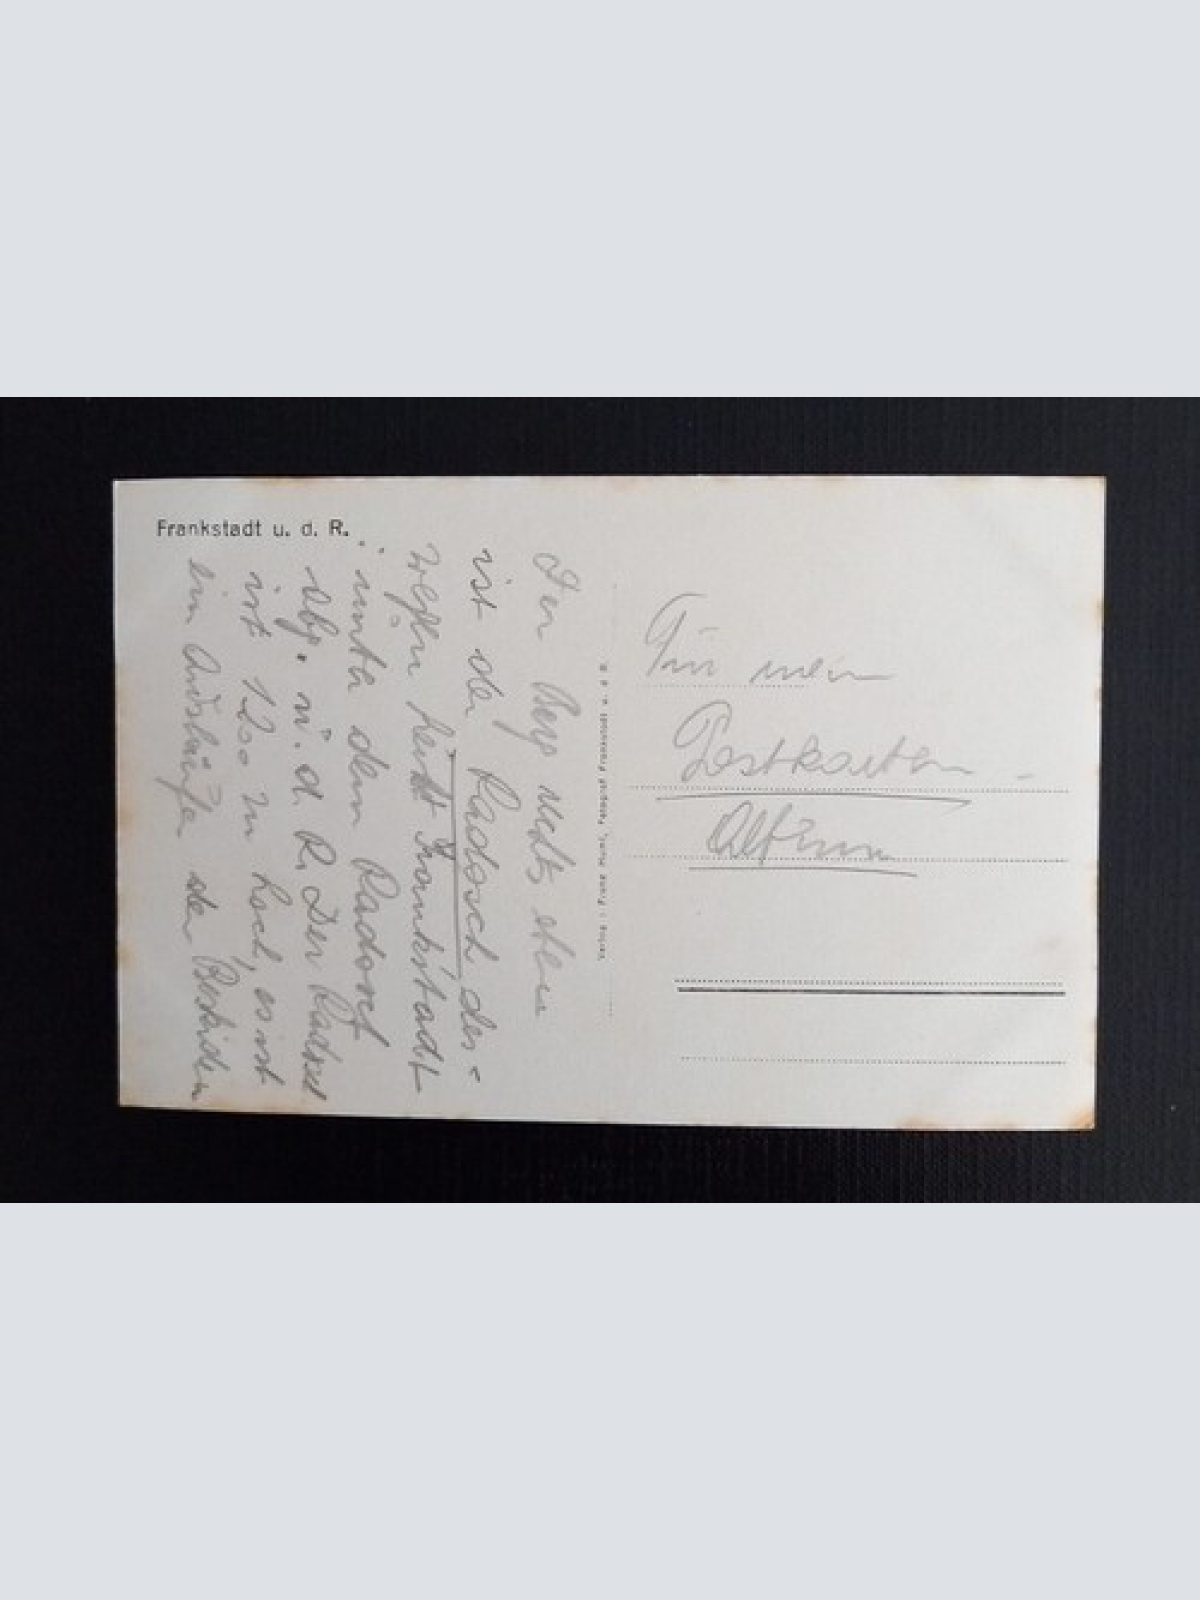 Frankstadt u. d. R.
Der Berg rechts oben
ist der Radosch, des=
wegen heißt Frankstadt
"unter dem Radost
abg. u. d. R. Der Radost
ist 1200 m hoch, es ist
ein Ausläufer der Beskiden
Verlag: Franz Fotograf Frankstadt u. d. R.
Für mein
Postkarten-
Album